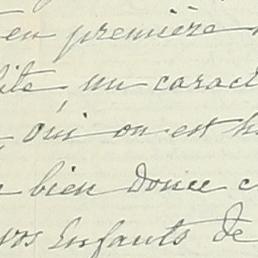 en première
un caract
qui on est h
bien douce c
vos Enfants de